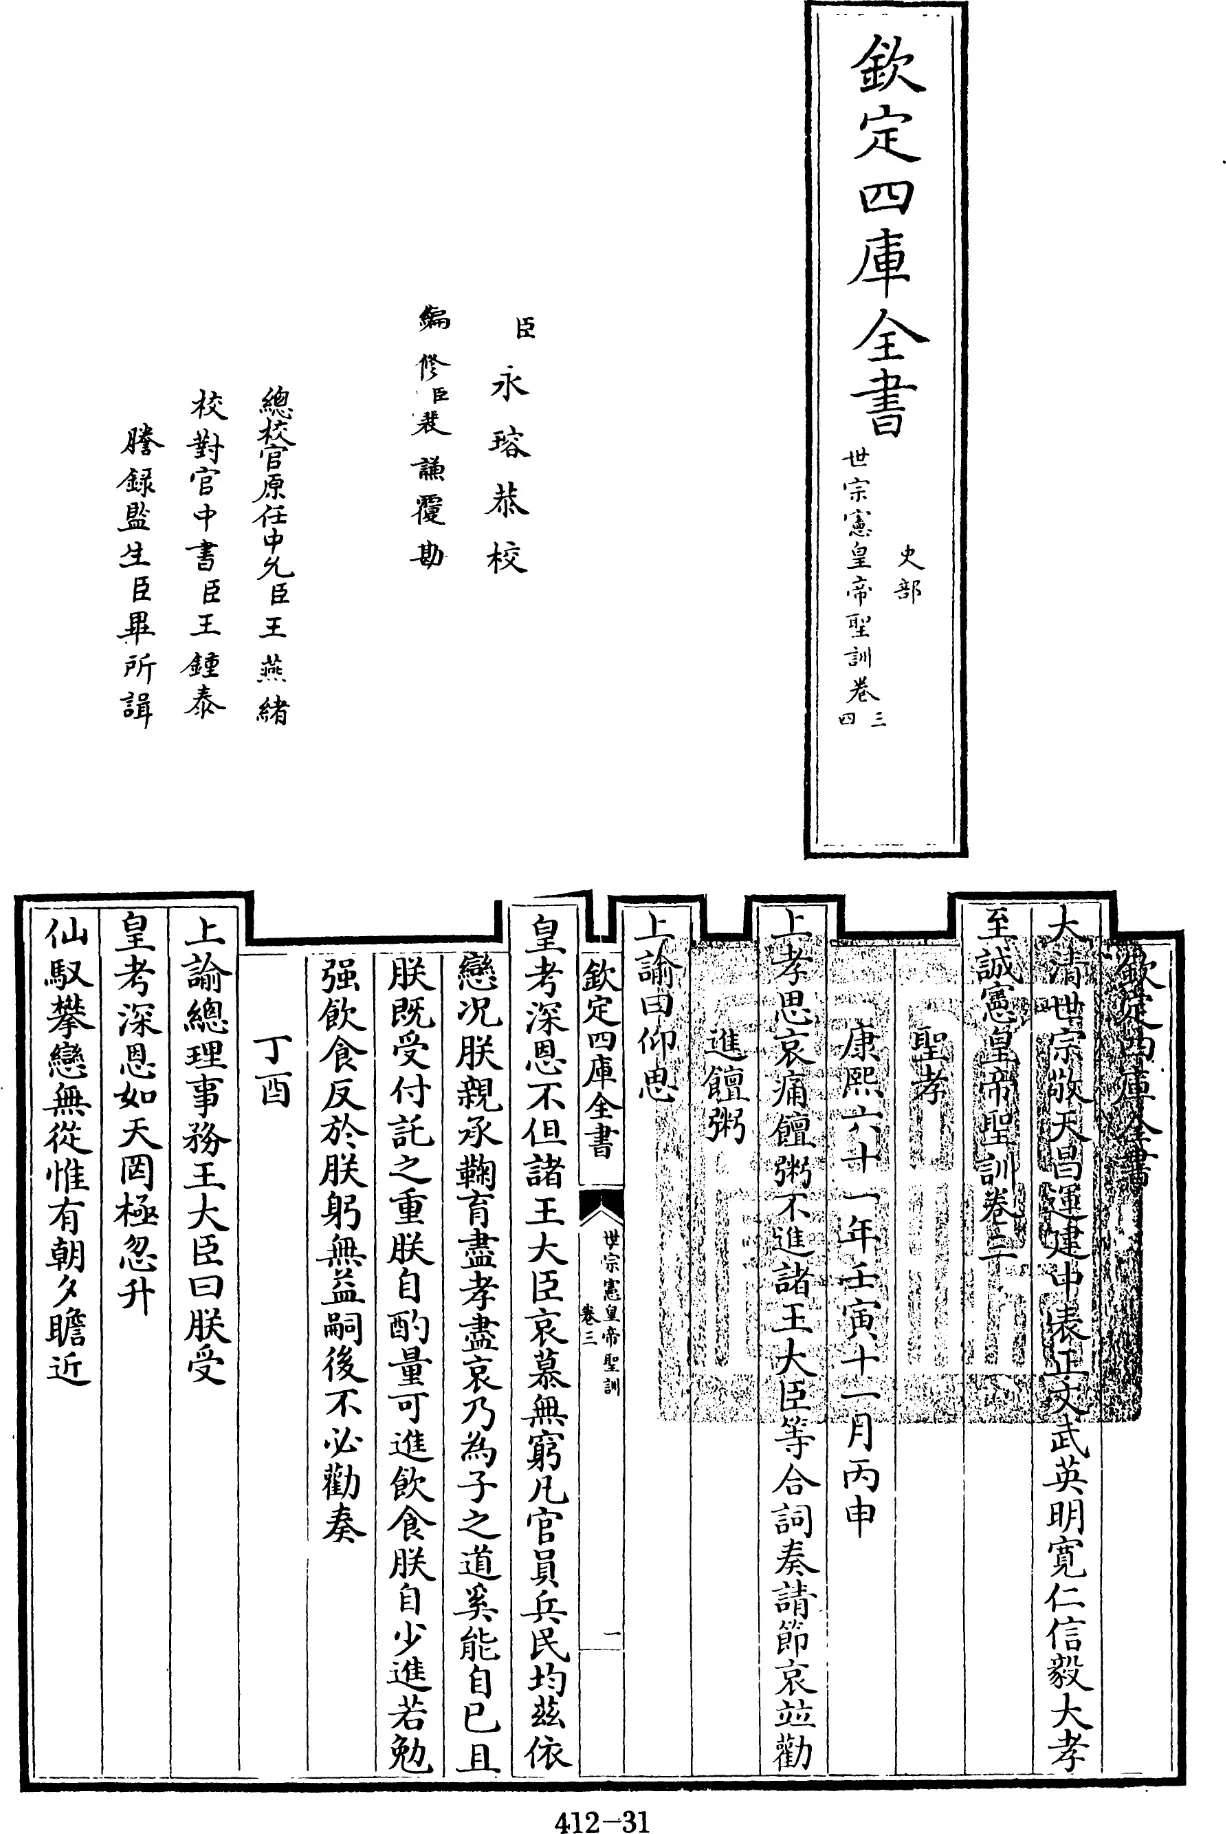 欽定四庫全書
史部
世宗憲皇帝聖訓卷三四
臣永瑢恭校
編修臣裴謙覆勘
總校官原任中允臣王燕緒
校對官中書臣王鍾泰
謄錄監生臣畢所諿
欽定四庫全書
大清世宗敬天昌運建中表正文武英明寬仁信毅大孝
至誠憲皇帝聖訓卷三
聖孝
康熙六十一年壬寅十一月丙申
上孝思哀痛饘粥不進諸王大臣等合詞奏請節哀並勸
進饘粥
上諭曰仰思
欽定四庫全書
世宗憲皇帝聖訓
卷三
一
皇考深恩不但諸王大臣哀慕無窮凡官員兵民均兹依
戀況朕親承鞠育盡孝盡哀乃為子之道奚能自已且
朕既受付託之重朕自酌量可進飲食朕自少進若勉
强飲食反於朕躬無益嗣後不必勸奏
丁酉
上諭總理事務王大臣曰朕受
皇考深恩如天罔極忽升
仙馭攀戀無從惟有朝夕瞻近
412-31